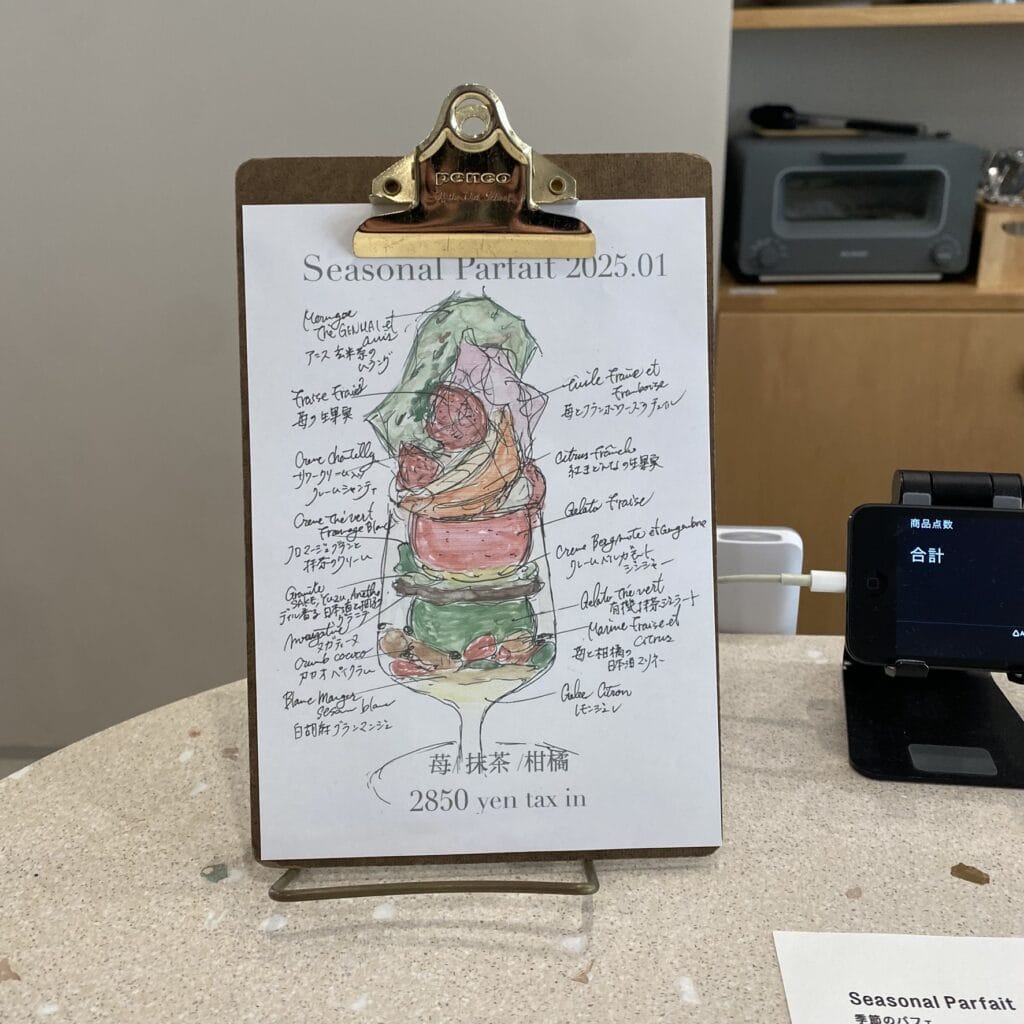 penco
Seasonal Parfait 2025.01
Meringue
Thé GENMAI et
anis
アニス玄米茶の
ムラング
Fraise Fraîs
苺の生果実
Creme chantilly
サワークリーム入り
クレームシャンティ
Creme thé vert
Fromage Blanc
フロマージュブランと
抹茶のクリーム
Granite
SAKE, Yuzu, Aneth
ディル香る日本酒と柚子の
グラニテ
Nougatine
ヌガティーヌ
Crumb cacao
カカオ
Blanc Manger
sesam blanc
白胡麻ブランマンジェ
Tuile Fraise et
Framboise
苺とフランボワーズのチュイル
Citrus Fraîche
紅まどんなの生果実
Gelato Fraise
Creme Bergamote et Gingembre
クレームベルガモット
ジンジャー
Gelato thé vert
有機抹茶ジェラート
Marine Fraise et
Citrus
苺と柑橘の
日本酒マリネ
Gelee Citron
レモンジュレ
苺/抹茶/柑橘
2850 yen tax in
商品点数
合計
Seasonal Parfait
季節のパフェ